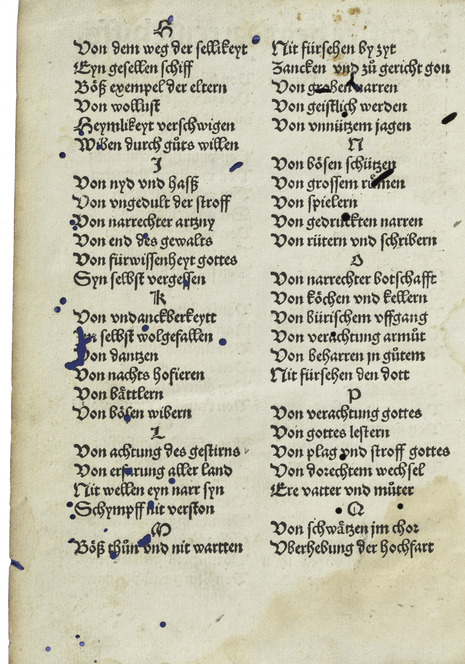 H
Von dem weg der sellikeyt
Eyn gesellen schiff
Böß exempel der eltern
Von wollust
Heymlikeyt verschwigen
Wiben durch gůts willen
I
Von nyd vnd hasß
Von vngedult der stroff
Von narrechter artzny
Von end des gewalts
Von fürwissenheyt gottes
Syn selbst vergessen
K
Von vndanckberkeytt
selbst wolgefallen
Von dantzen
Von nachts hofieren
Von bättlern
Von bösen wibern
L
Von achtung des gestirns
Von erfarung aller land
Nit wellen eyn narr syn
Schympff nit verston
M
Böß thůn vnd nit wartten
Nit fürsehen by zyt
Zancken vnd zů gericht gon
Von groben narren
Von geistlich werden
Von vnnützem jagen
N
Von bösen schützen
Von grossem růmen
Von spielern
Von gedruckten narren
Von rütern vnd schribern
O
Von narrechter botschafft
Von köchen vnd kellern
Von bürischem vffgang
Von verachtung armůt
Von beharren jn gůtem
Nit fürsehen den dott
P
Von verachtung gottes
Von gottes lestern
Von plag vnd stroff gottes
Von dorechtem wechsel
Ere vatter vnd můter
Q
Von schwätzen jm chor
Vberhebung der hochfart